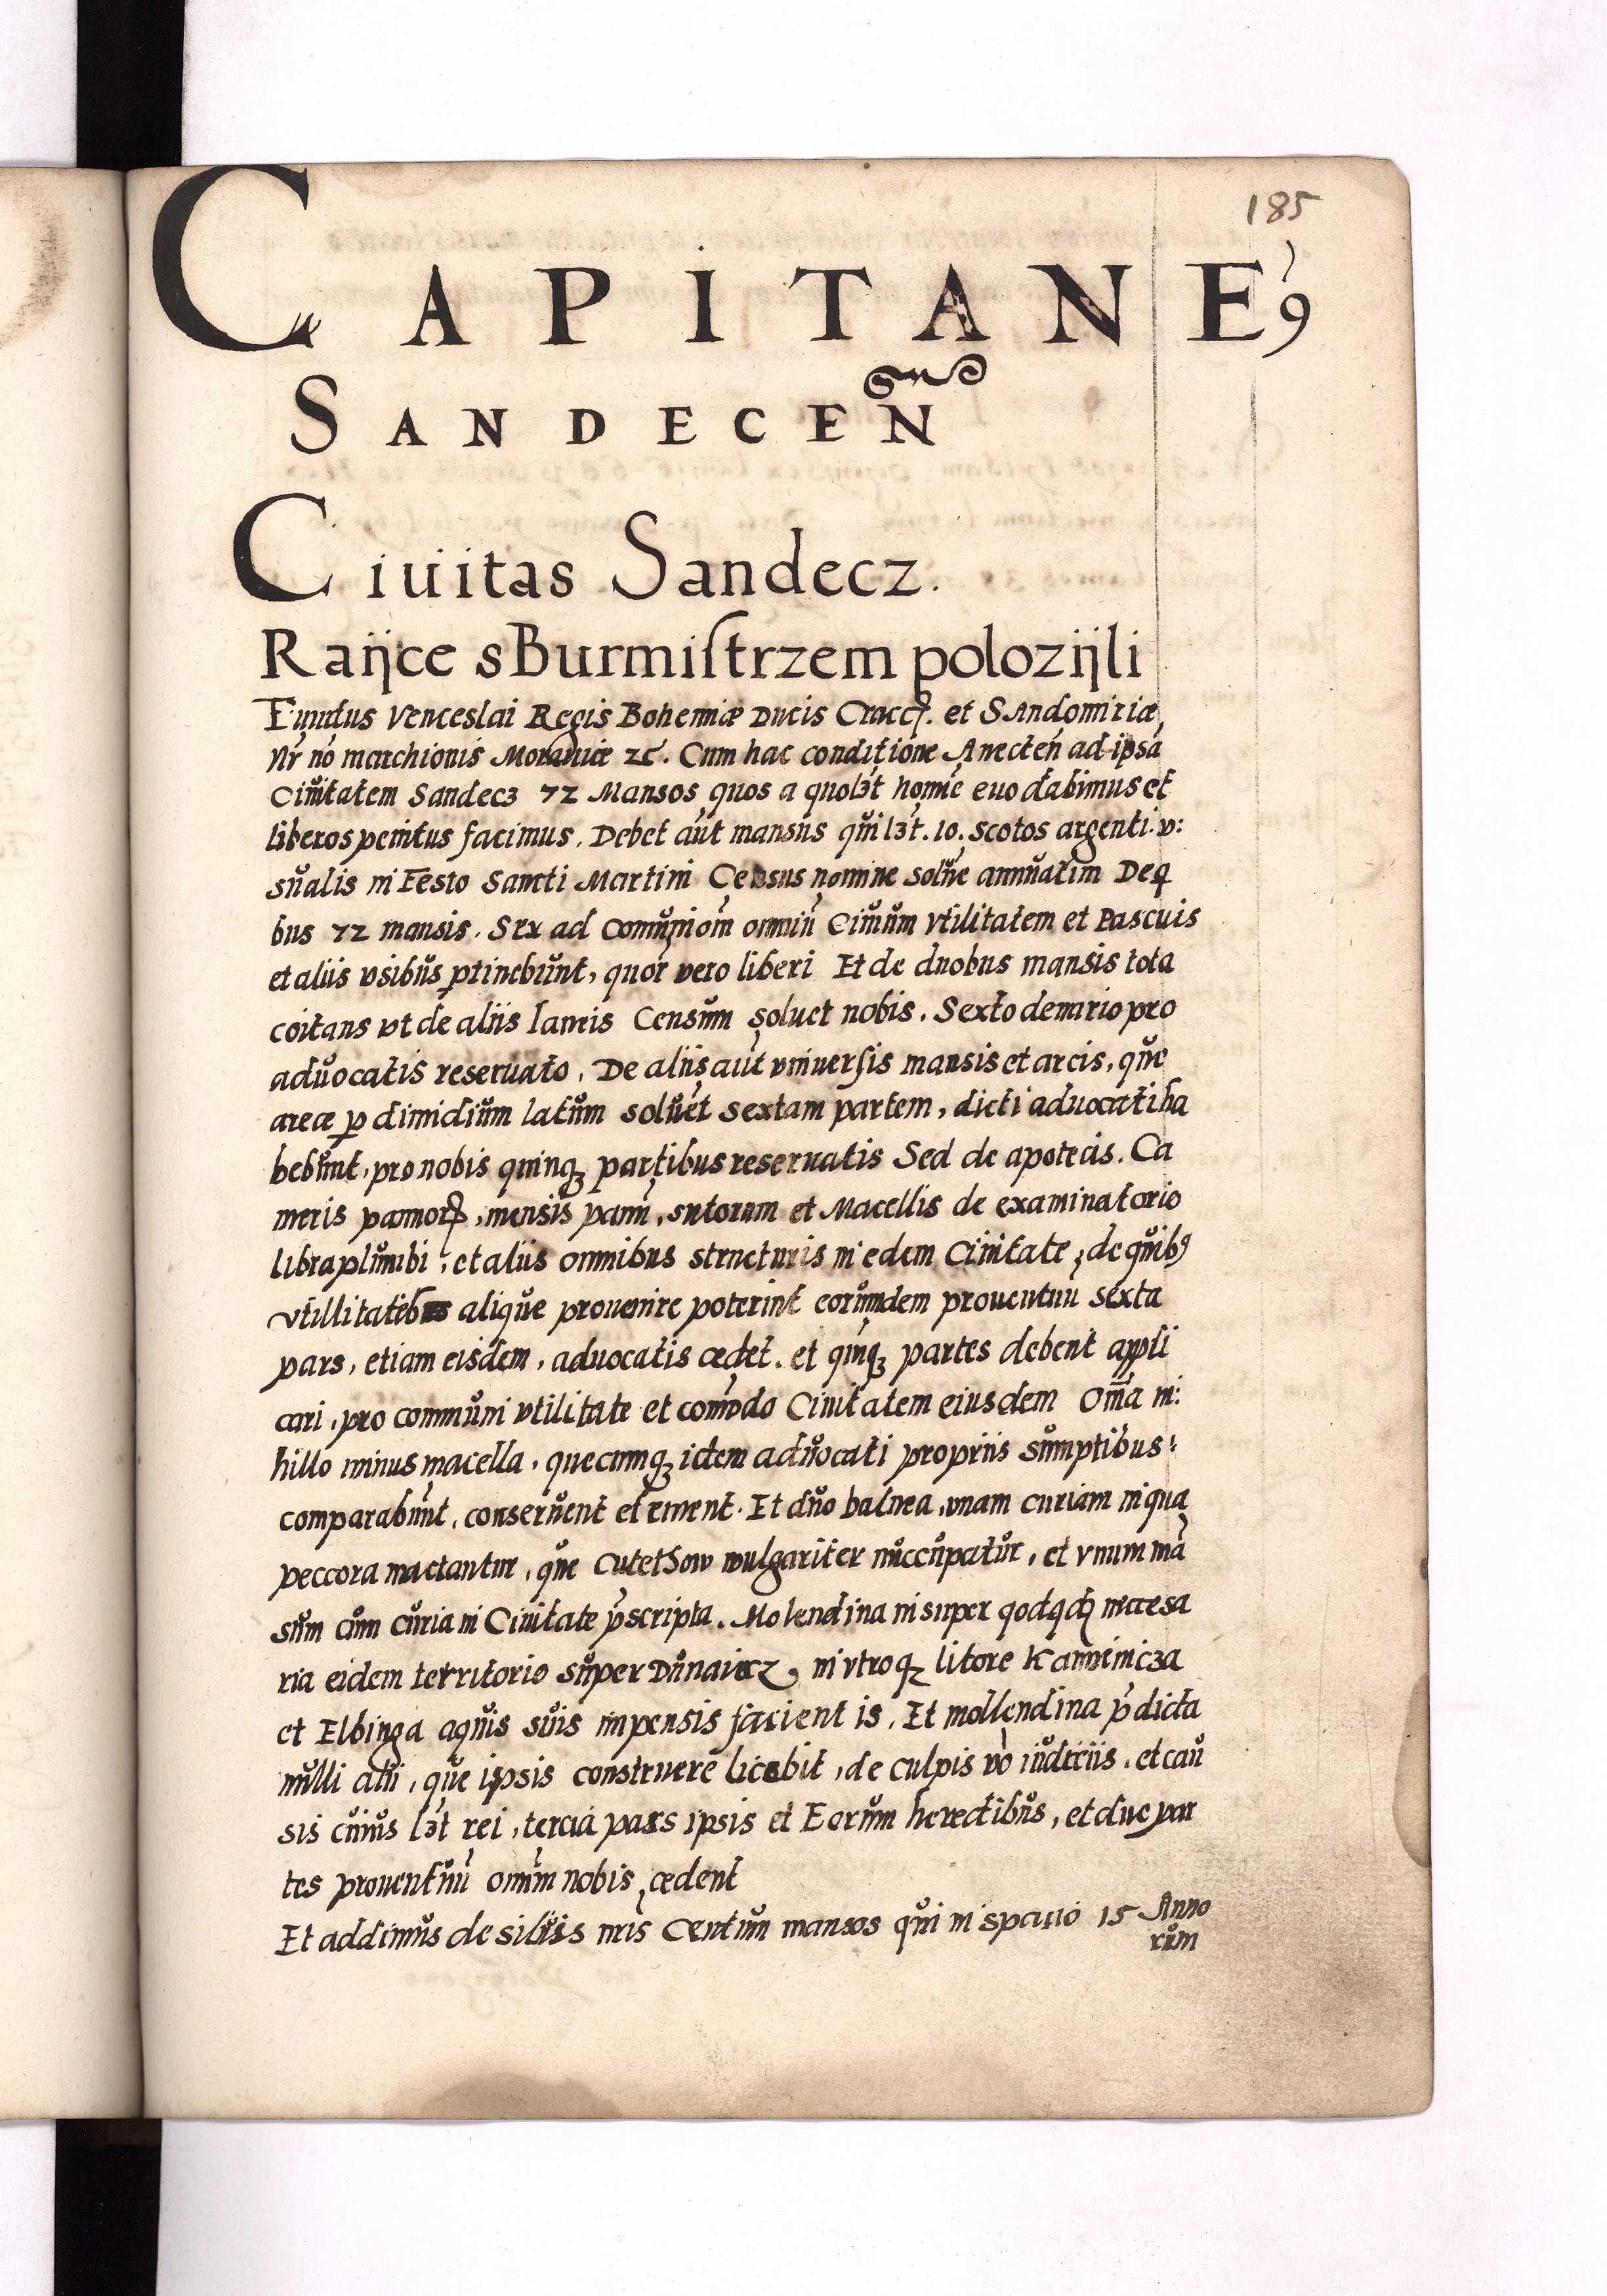 185
CAPITANE9
SANDECEN
Ciuitas Sandecz.
Raijce s Burmiſtrzem polozijli
Fundus Venceslai Regis Bohemiæ Ducis Cracc. et SAndomiriæ
Nr no marchionis Morauiæ zc. Cum hac conditione Anecten ad ipsa
Ciuitatem Sandecz 72 Mansos quos a quolzt homie euo dabimus et
liberos penitus facimus. Debet aut mansus quilzt. 10. scotos argenti. v:
sualis in Festo Sancti Martini Census nomine solue annuatim De q
bus 72 mansis. Sex ad Comuniom omniu Ciuium vtilitatem et Pascuis
et aliis vsibus ptinebunt, quor vero liberi Et de duobus mansis tota
coitans vt de aliis laneis Censum soluet nobis. Sexto denario pro
aduocatis reseruato. De aliis aut vniuerſis mansis et arcis, que
areæ p dimidium latum soluet sextam partem, dicti aduocati ha
bebunt, pro nobis quinqz partibus reseruatis Sed de apotecis. Ca
meris pannor, mensis panu, sutorum et Macellis de examinatorio
libra plumbi, et aliis omnibus structuris in edem Ciuitate, de quib9
vtillitatib alique prouenire poterint eorumdem prouentuu sexta
pars, etiam eisdem, aduocatis cedet. et qinqz partes debent appli
cari, pro communi vtilitate et comodo Ciuitatem eiusdem Oma ni:
hillo minus macella, quecumqz idem aduocati propriis sumptibus
comparabunt, conseruent et ement. Et duo balnea, vnam curiam in qua
peccora mactantur, que Cutelhow wulgariter nuccupatur, et vnum ma
sum cum curia in Ciuitate pscripta. Molendina insuper qodqdq necesa
ria eidem territorio super Dunaiecz, in vtroqz litore Kamienicza
et Elbinga aquis suis impensis facient is. Et mollendina pdicta
nulli alii, que ipsis construere licebit, de culpis vo iudiciis, et cau
sis cuius lzt rei, tercia pars ipsis et Eorum heredibus, et due par
tes prouentuu omium nobis cedent
Et addimus de siluis nris Centum mansos qui in spatio 15 Anno
rum